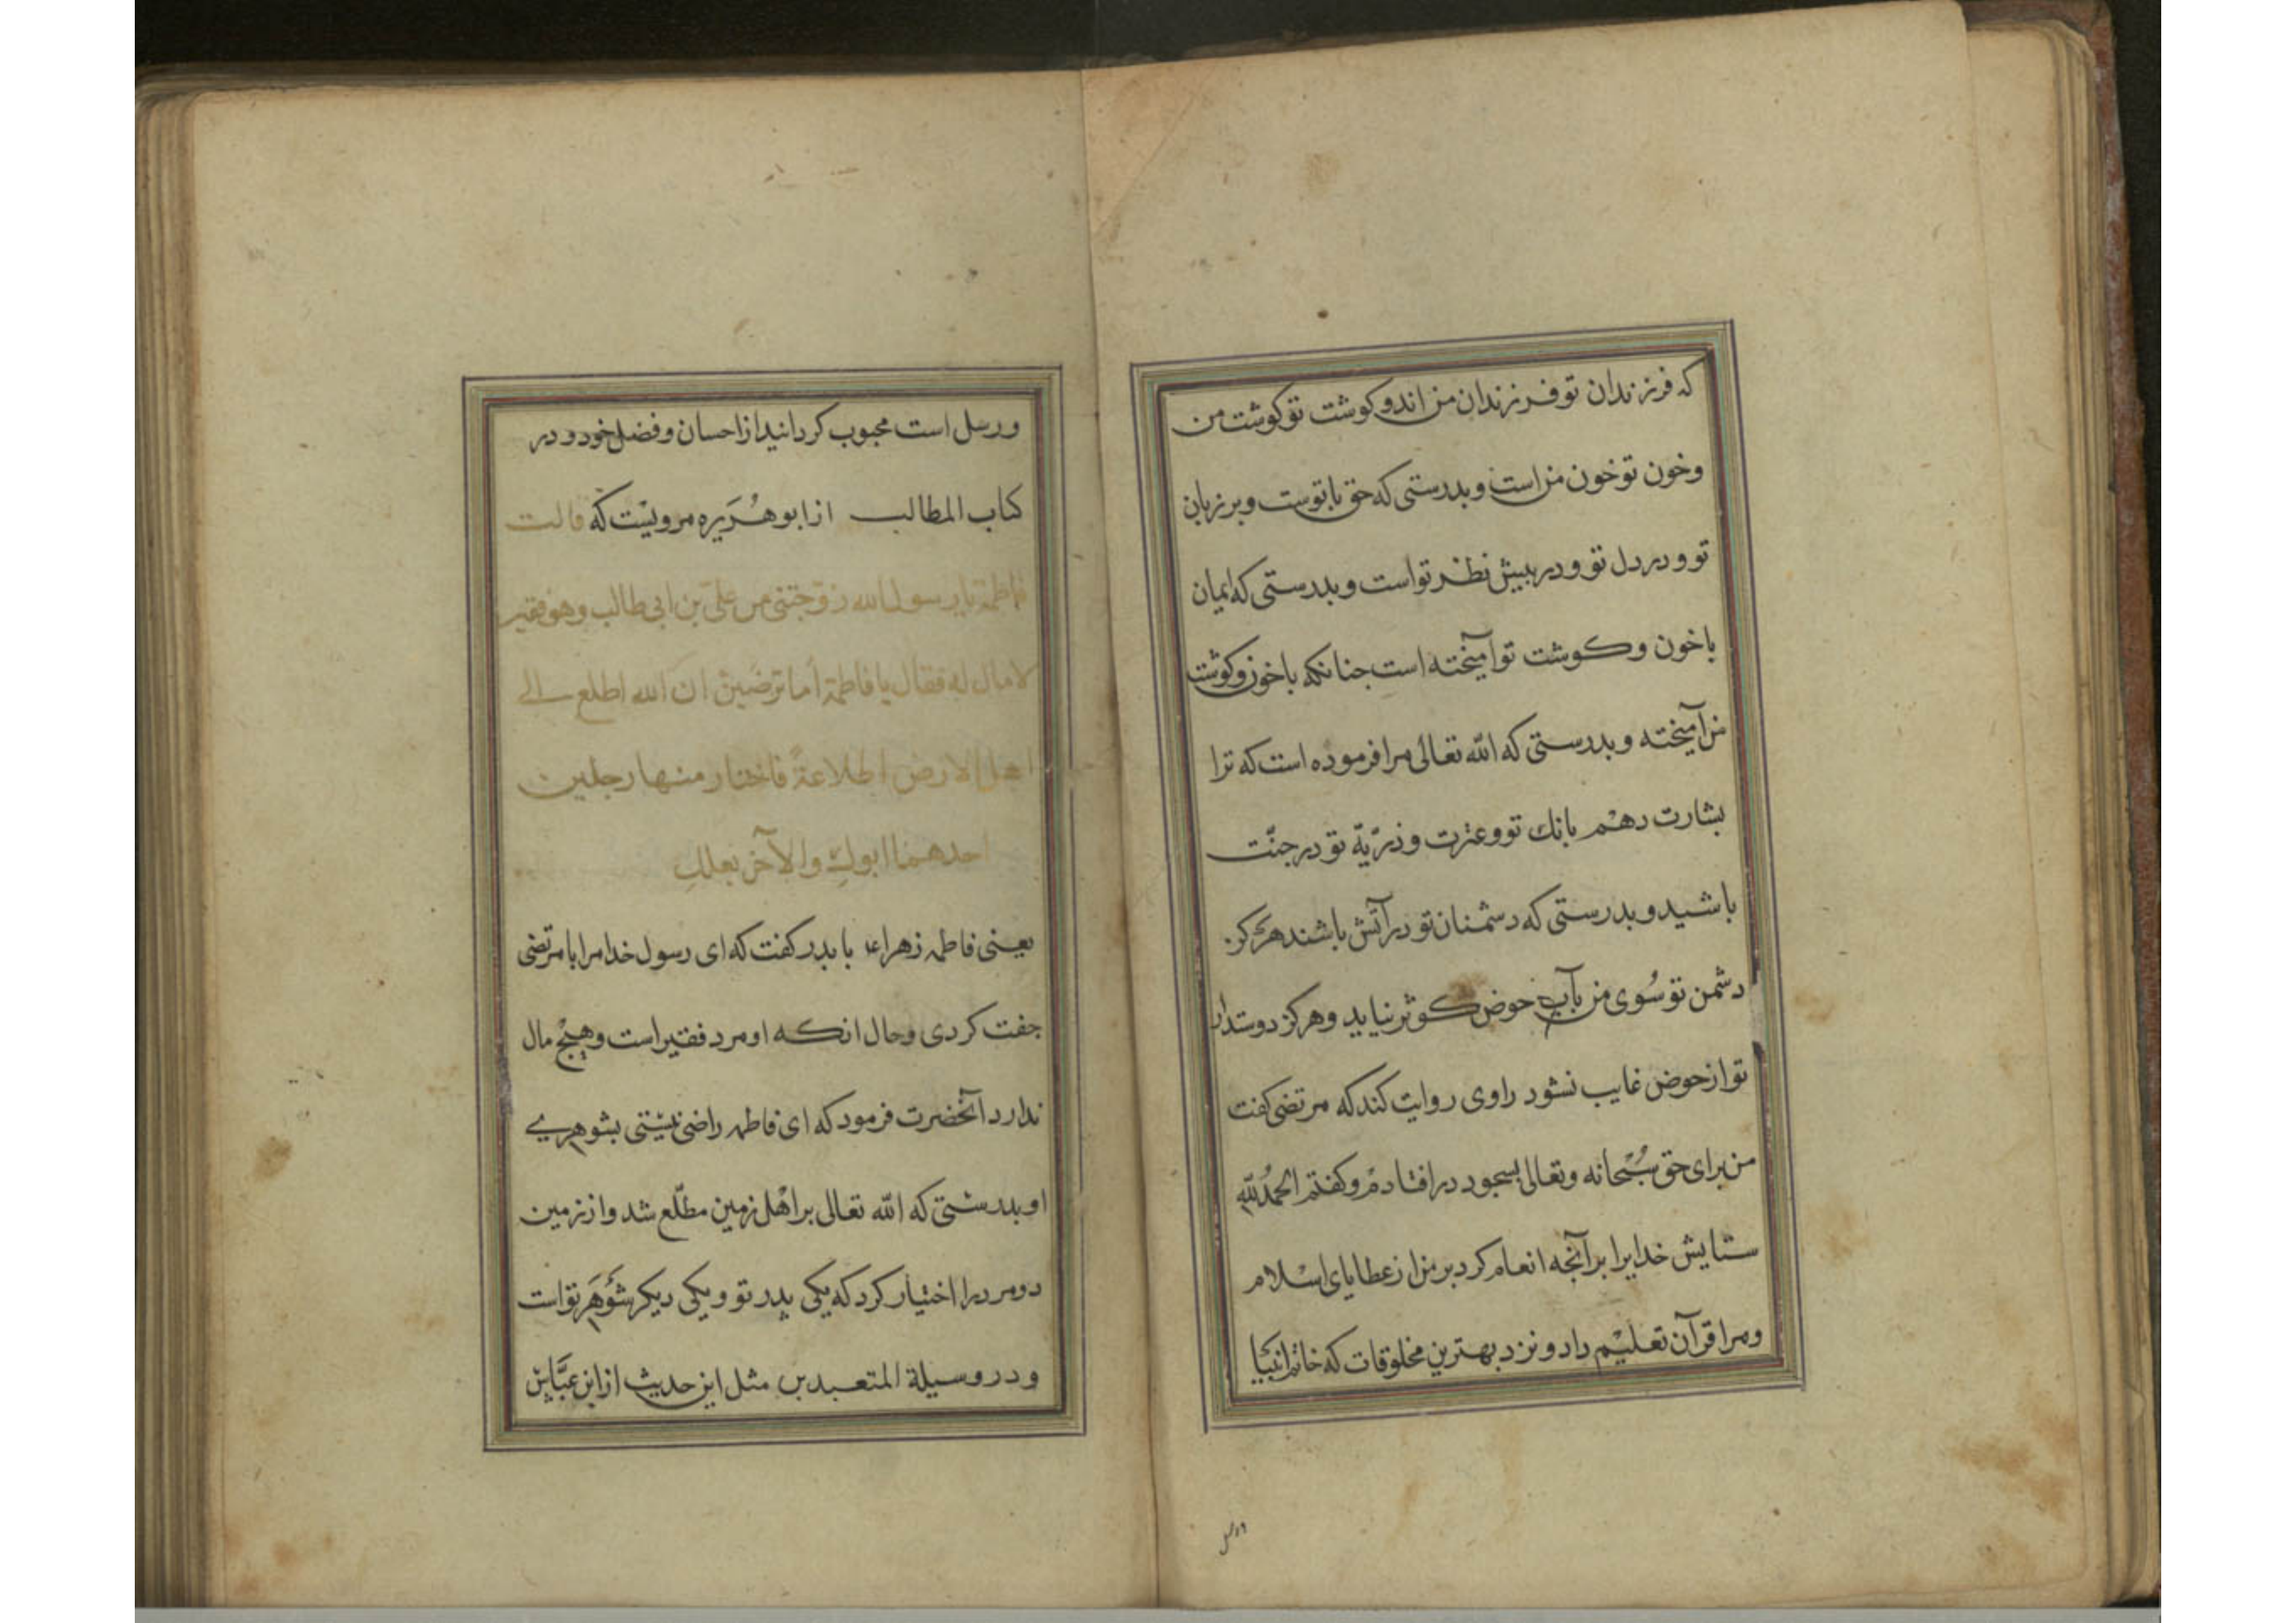 که فرزندان تو فرزندان من اند و کوشت تو کوشت من
وخون تو خون من است و بدرستی که حق با توست و بر زبان
تو و در دل تو و در پیش نظر تو است و بدرستی که ایمان
با خون و کوشت تو آمیخته است جنانکه با خون و کوشت
من آمیخته و بدرستی که الله تعالی مرا فرموده است که ترا
بشارت دهم بانك تو و عترت و ذریّه تو در جنّت
باشید و بدرستی که دشمنان تو در آتش باشند هرکز
دشمن تو سُوی من بآب حوض کوثر نیاید و هرکز دوستدار
تو از حوض غایب نشود راوی روایت کند که مرتضی کفت
من برای حق سُبْحانه وتعالی بسجود در افتادم و کفتم الحمدُ لله
ستایش خدایرا بر آنچه انعام کرد بر من از عطایای اسلام
و مرا قرآن تعلیم داد و نزد بهترین مخلوقات که خاتم انبیا
و رسل است محبوب کردانید از احسان و فضل خود و در
کتاب المطالب از ابو هُرَیره مرویست که قالت
فاطمة یا رسول الله زوّجتنی من علیّ بن ابی طالب وهو فقیر
لا مال له فقال یا فاطمة أما ترضین ان الله اطلع الی
اهل الارض اطلاعةً فاختار منها رجلین
احدهما ابوكِ والآخر بعلكِ
یعنی فاطمه زهراء با پدر کفت که ای رسول خدا مرا با مرتضی
جفت کردی و حال انکه او مرد فقیر است و هیچ مال
ندارد آنحضرت فرمود که ای فاطمه راضی نیستی بشوهری
او بدرستی که الله تعالی بر اهل زمین مطّلع شد و از زمین
دو مرد را اختیار کرد که یکی پدر تو و یکی دیکر شَوهَر تو است
و در وسیلة المتعبدین مثل این حدیث از ابن عبّاس